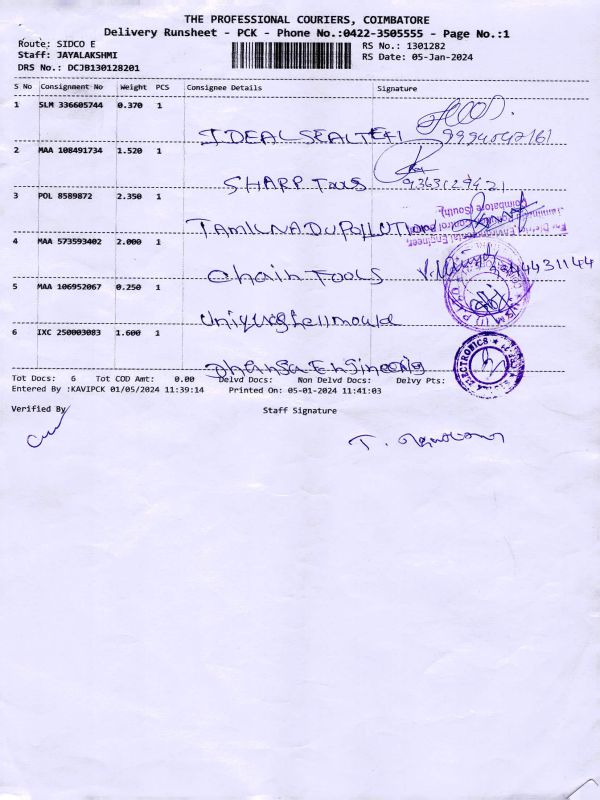 THE PROFESSIONAL COURIERS, COIMBATORE
Delivery Runsheet - PCK - Phone No.:0422-3505555 - Page No.:1
Route: SIDCO E
RS No.: 1301282
Staff: JAYALAKSHMI
RS Date: 05-Jan-2024
DRS No.: DCJB130128201
S No Consignment No Weight PCS Consignee Details Signature
1 SLM 336605744 0.370 1
IDEAL SEAL TEFI
2 MAA 108491734 1.520 1
SHARP Tools 9363129421
3 POL 8589872 2.350 1
TAMILNADU POLLUTION
4 MAA 573593402 2.000 1
Chain TOOLS 9344431144
5 MAA 106952067 0.250 1
6 IXC 250003083 1.600 1
ELECTRONICS
Tot Docs: 6 Tot COD Amt: 0.00 Delvd Docs: Non Delvd Docs: Delvy Pts:
Entered By :KAVIPCK 01/05/2024 11:39:14 Printed On: 05-01-2024 11:41:03
Verified By Staff Signature